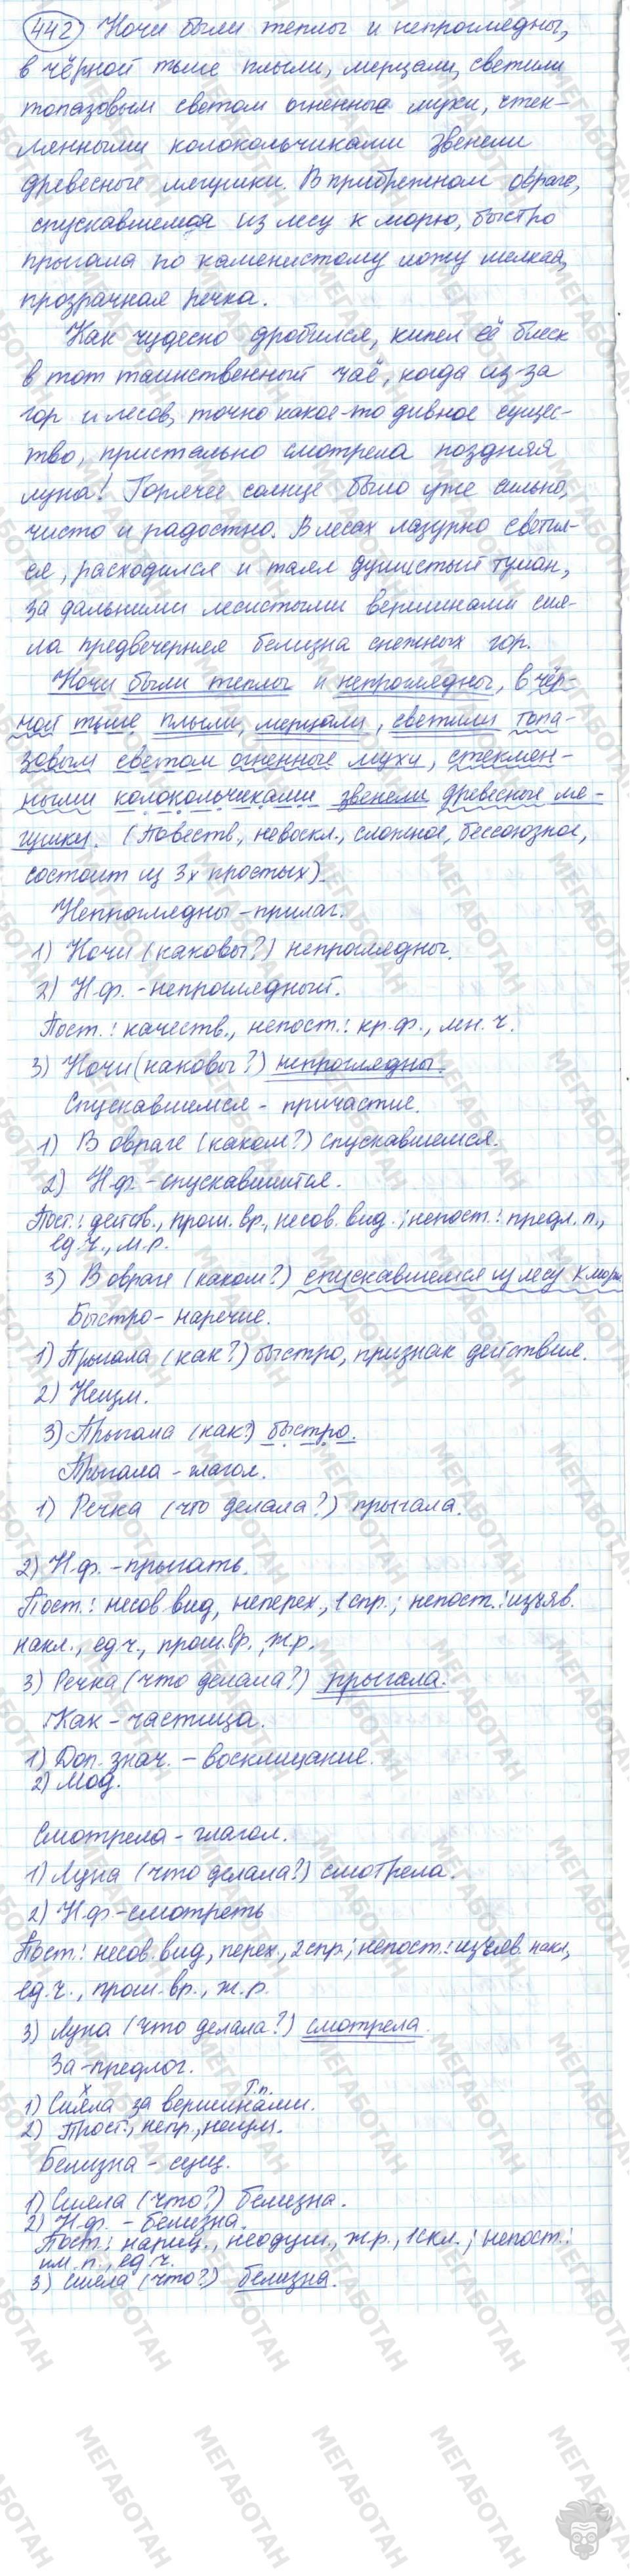 442) Ночи были теплы и непроглядны,
в чёрной тьме плыли, мерцали, светили
топазовым светом огненные мухи, стек-
лянными колокольчиками звенели
древесные лягушки. В прибрежном овраге,
спускавшемся из лесу к морю, быстро
прыгала по каменистому ложу мелкая,
прозрачная речка.
Как чудесно дробился, кипел её блеск
в тот таинственный час, когда из-за
гор и лесов, точно какое-то дивное сущес-
тво, пристально смотрела поздняя
луна! Горячее солнце было уже сильно,
чисто и радостно. В лесах лазурно светил-
ся, расходился и таял душистый туман,
за дальними лесистыми вершинами сия-
ла предвечерняя белизна снежных гор.
Ночи были теплы и непроглядны, в чёр-
ной тьме плыли, мерцали, светили топа-
зовым светом огненные мухи, стеклян-
ными колокольчиками звенели древесные ля-
гушки. (Повеств., невоскл., сложное, бессоюзное,
состоит из 3х простых).
Непроглядны - прилаг.
1) Ночи (каковы?) непроглядны.
2) Н.ф. - непроглядный.
Пост.: качеств., непост.: кр.ф., мн.ч.
3) Ночи (каковы?) непроглядны.
Спускавшемся - причастие.
1) В овраге (каком?) спускавшемся.
2) Н.ф. - спускавшийся.
Пост.: действ., прош. вр., несов. вид.; непост.: предл. п.,
ед.ч., м.р.
3) В овраге (каком?) спускавшемся из лесу к морю
Быстро - наречие.
1) Прыгала (как?) быстро, признак действия.
2) Неизм.
3) Прыгала (как?) быстро.
Прыгала - глагол.
1) Речка (что делала?) прыгала.
2) Н.ф. - прыгать.
Пост.: несов. вид, неперех., 1 спр.; непост.: изъяв.
накл., ед.ч., прош. вр., ж.р.
3) Речка (что делала?) прыгала.
Как - частица.
1) Доп. знач. - восклицание.
2) Мод.
Смотрела - глагол.
1) Луна (что делала?) смотрела.
2) Н.ф. - смотреть
Пост.: несов. вид, перех., 2 спр.; непост.: изъяв. накл.,
ед.ч., прош. вр., ж.р.
3) Луна (что делала?) смотрела.
За - предлог.
1) Сияла за вершинами. Т.п.
2) Прост., непр., неизм.
Белизна - сущ.
1) Сияла (что?) белизна.
2) Н.ф. - белизна.
Пост.: нариц., неодуш., ж.р., 1 скл.; непост.:
им. п., ед.ч.
3) Сияла (что?) белизна.
МЕГАБОТАН